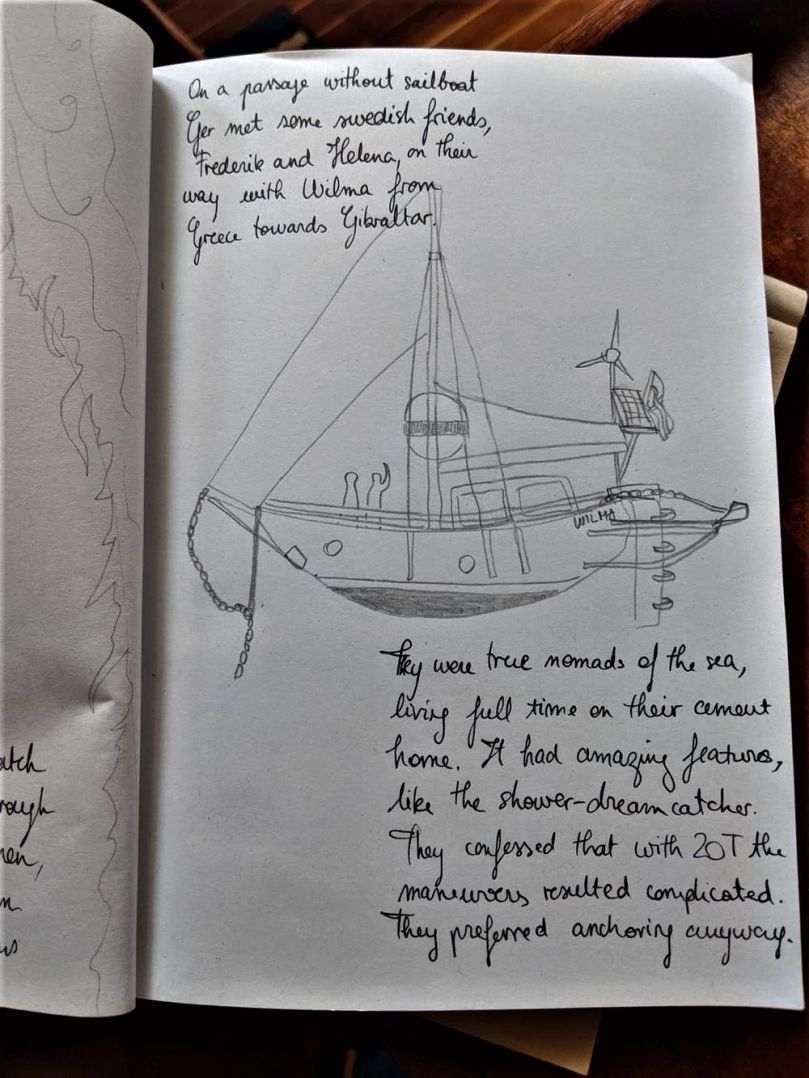 On a passage without sailboat
Ger met some swedish friends,
Frederik and Helena, on their
way with Wilma from
Greece towards Gibraltar.
WILMA
They were true nomads of the sea,
living full time on their cement
home. It had amazing features,
like the shower-dreamcatcher.
They confessed that with 20T the
maneuvers resulted complicated.
They preferred anchoring anyway.